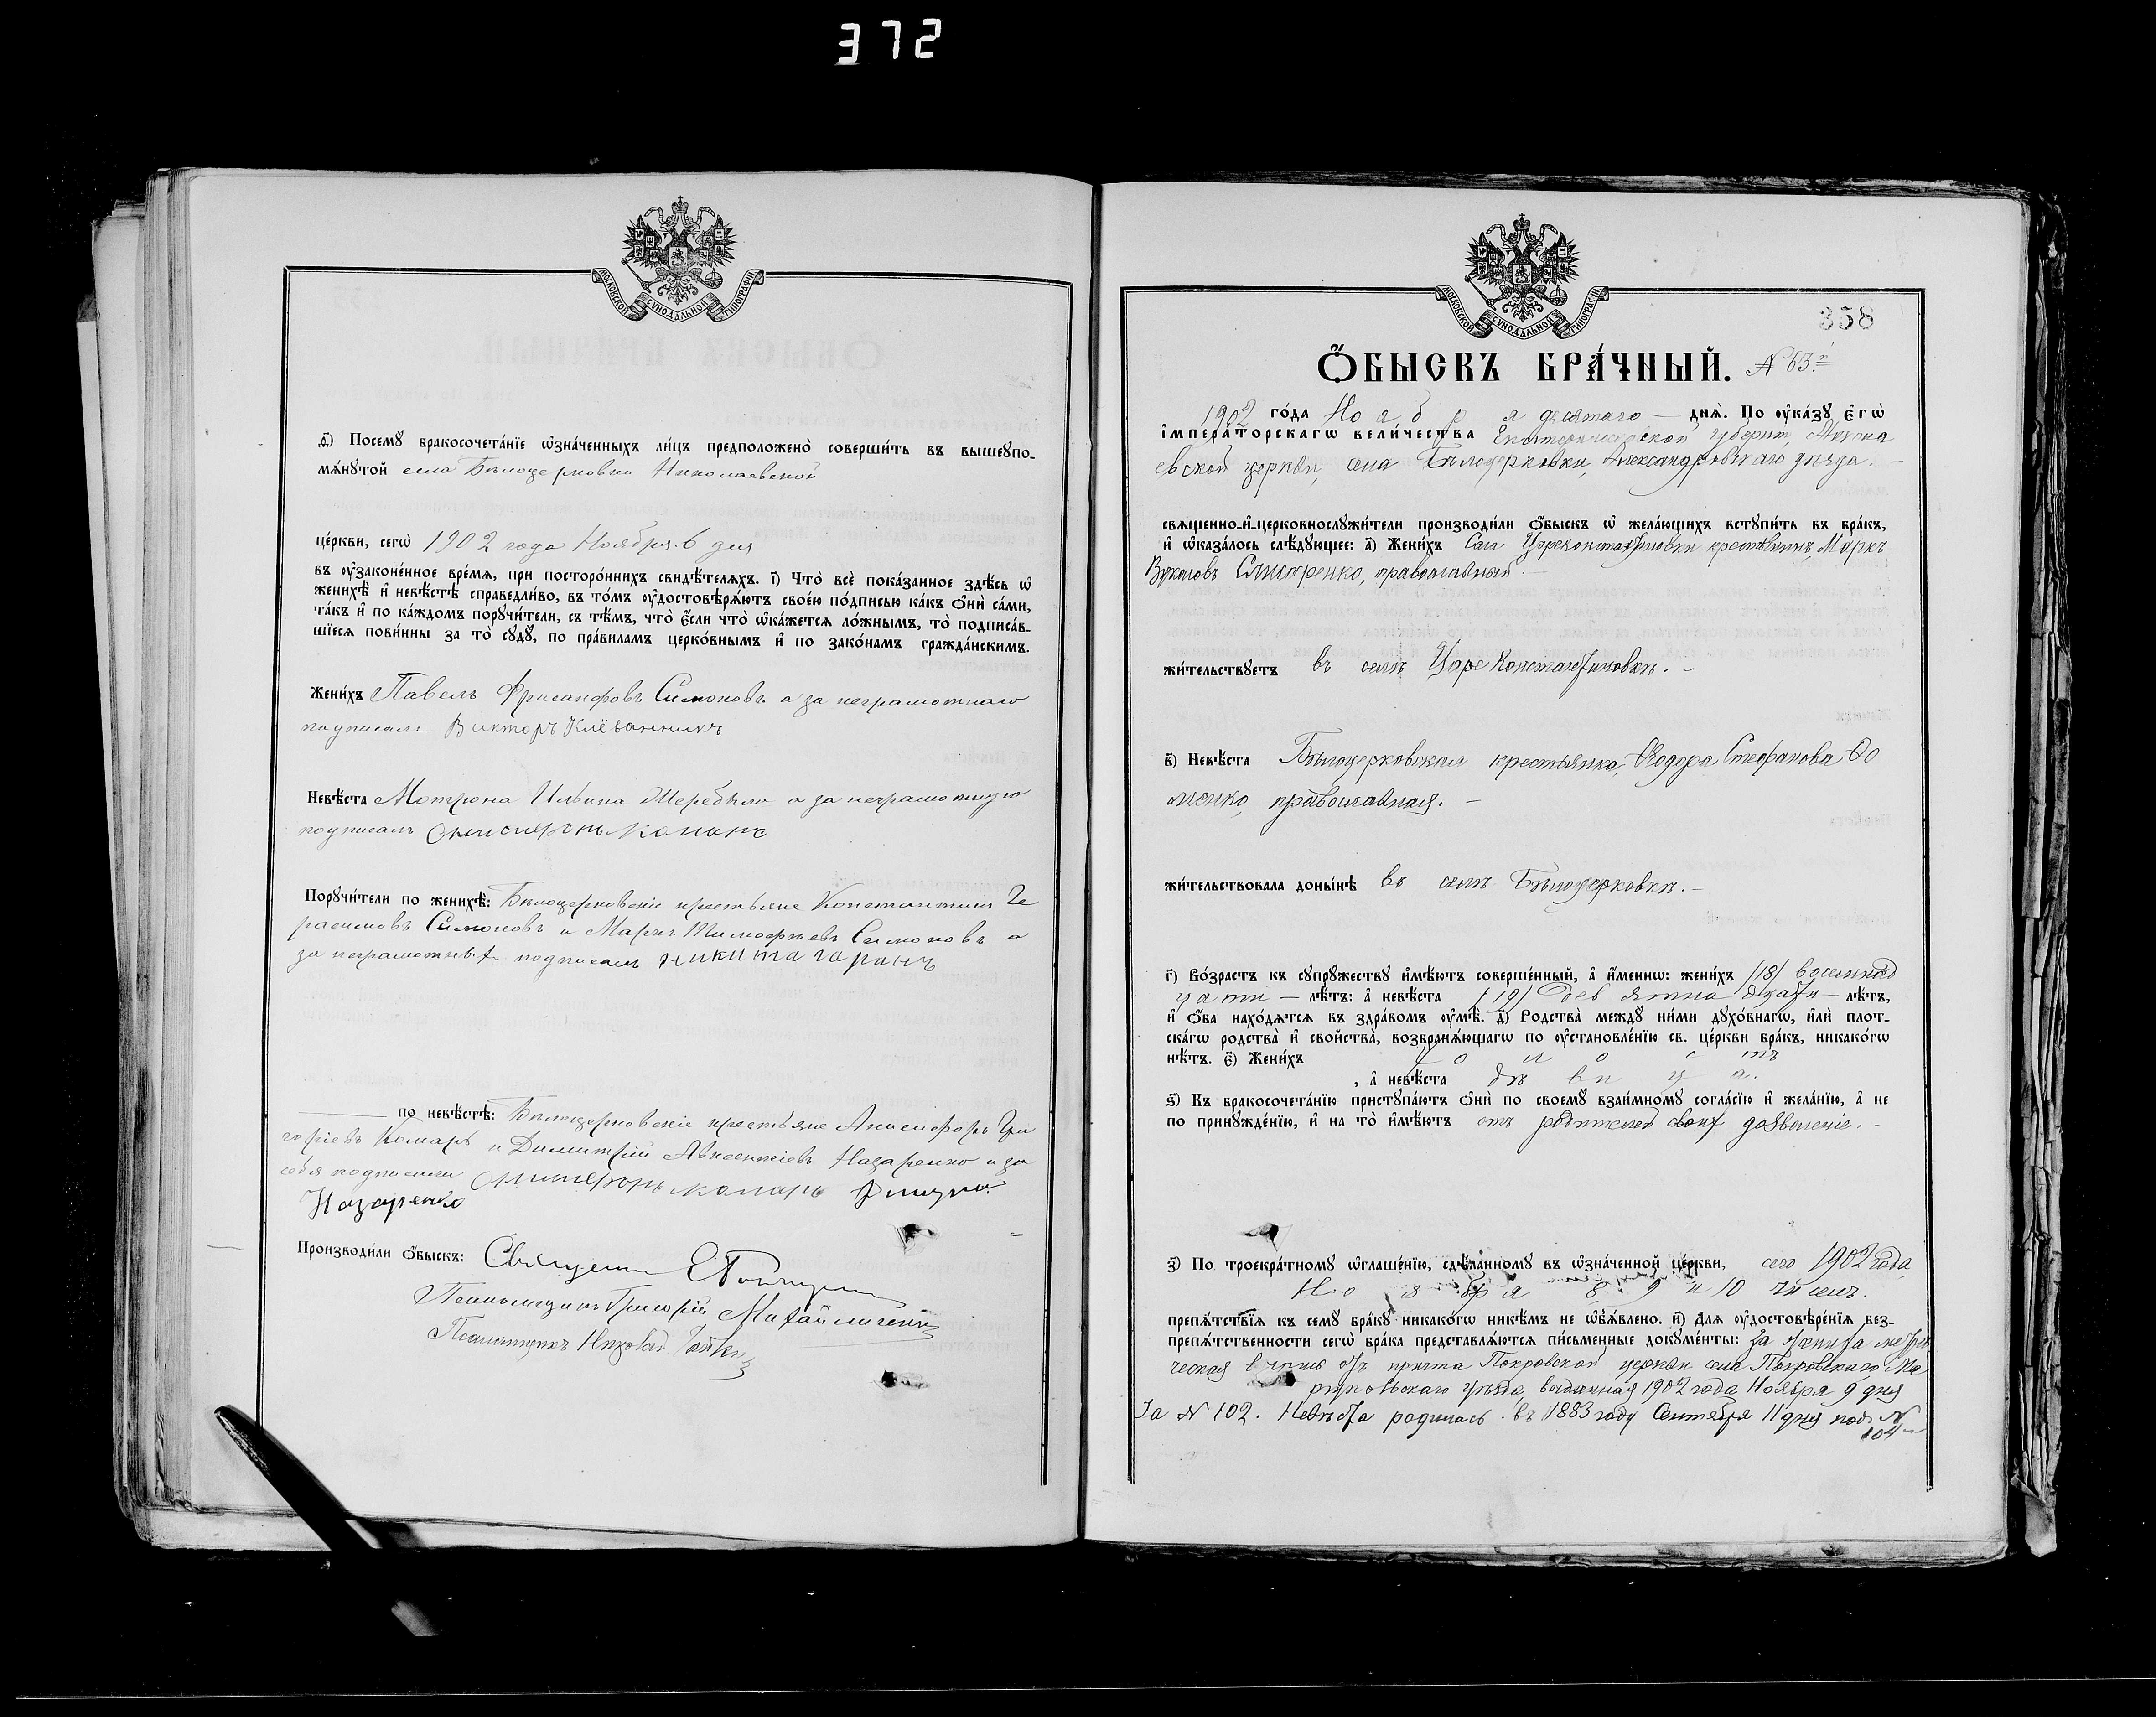 372
МОСКОВСКОЙ СУНОДАЛЬНОЙ ТИПОГРАФІИ
д҃і) Посемꙋ бракосочета́нїе ѡ҆зна́ченныхъ ли́цъ предположено̀ соверши́ть въ вышеꙋпо-
мѧ́нꙋтой села Бѣлоцерковки Николаевской
це́ркви, сегѡ̀ 1902 года Ноября 6 дня
въ ᲂу҆зако́ненное вре́мѧ, при посторо́ннихъ свидѣ́телѧхъ. і҃) Что̀ всѐ пока́занное здѣ́сь ѡ҆
женихѣ̀ и҆ невѣ́стѣ справедли́во, въ то́мъ ᲂу҆достовѣрѧ́ютъ свое́ю по́дписью ка́къ ѻ҆нѝ са́ми,
та́къ и҆ по ка́ждомъ порꙋчи́тели, съ тѣ́мъ, что̀ є҆́сли что̀ ѡ҆ка́жетсѧ ло́жнымъ, то̀ подписа́в-
шїесѧ пови́нны за то̀ сꙋдꙋ̀, по пра́виламъ церко́внымъ и҆ по зако́намъ гражда́нскимъ.
Жени́хъ Павелъ Фрисанфовъ Симоновъ а за неграмотнаго
подписалъ Викторъ Клёванникъ
Невѣ́ста Мотрона Ильина Жеребило а за неграмотную
подписалъ
Порꙋчи́тели по женихѣ̀: Бѣлоцерковскіе крестьяне Константинъ Ге
расимовъ Симоновъ и Маркъ Тимофѣевъ Симоновъ а
за неграмотныхъ подписалъ никита гаранъ
по невѣ́стѣ: Бѣлоцерковскіе крестьяне Анисифоръ Гри
горіевъ Комаръ и Димитрій Авксентіевъ Назаренко и за
себя подписали комаръ
Назаренко
Производи́ли ѻ҆́быскъ: Священникъ
Псаломщикъ Григорій Михайличенко
Псаломщикъ
МОСКОВСКОЙ СУНОДАЛЬНОЙ ТИПОГРАФІИ
358
Ѻ҆́БЫСКЪ БРА́ЧНЫЙ. № 63.й
1902 го́да Ноября десятаго днѧ̀. По ᲂу҆ка́зꙋ є҆гѡ̀
і҆мпера́торскагѡ вели́чества Екатеринославской губерніи, Никола
евской церкви, села Бѣлоцерковки, Александровскаго уѣзда.
свѧще́нно-и҆-церковнослꙋжи́тели производи́ли ѻ҆́быскъ ѡ҆ жела́ющихъ встꙋпи́ть въ бра́къ,
и҆ ѡ҆каза́лось слѣ́дꙋющее: а҃) Жени́хъ Села Цареконстантиновки крестьянинъ, Маркъ
Вуколовъ Слисаренко, православный.
жи́тельствꙋетъ въ селѣ Царе Константиновкѣ.
в҃) Невѣ́ста Бѣлоцерковская крестьянка, Ѳеодора Стефанова Ѳо
менко, православная.
жи́тельствовала доны́нѣ въ селѣ Бѣлоцерковкѣ.
г҃) Во́зрастъ къ сꙋпрꙋ́жествꙋ и҆мѣ́ютъ соверше́нный, а҆ и҆́меннѡ: жени́хъ (18) восемнад
цати лѣ́тъ: а҆ невѣ́ста (19) девятнадцати лѣ́тъ,
и҆ ѻ҆́ба нахо́дѧтсѧ въ здра́вомъ ᲂу҆мѣ̀. д҃) Родства̀ междꙋ̀ ни́ми дꙋхо́внагѡ, и҆лѝ плот-
ска́гѡ родства̀ и҆ сво́йства, возбранѧ́ющагѡ по ᲂу҆становле́нїю св. це́ркви бра́къ, никако́гѡ
нѣ́тъ. є҃) Жени́хъ холостъ
, а҆ невѣ́ста дѣвица.
ѕ҃) Къ бракосочета́нїю пристꙋпа́ютъ ѻ҆нѝ по своемꙋ̀ взаи́мномꙋ согла́сїю и҆ жела́нїю, а҆ не
по принꙋжде́нїю, и҆ на то̀ и҆мѣ́ютъ отъ родителей своих дозволеніе.
з҃) По троекра́тномꙋ ѡ҆глаше́нїю, сдѣ́ланномꙋ въ ѡ҆зна́ченной це́ркви, сего 1902 года,
Ноября 8. 9 и 10 чиселъ.
препѧ́тствїѧ къ семꙋ̀ бра́кꙋ никако́гѡ никѣ́мъ не ѡ҆б̾ѧ́влено. и҃) Длѧ ᲂу҆достовѣре́нїѧ без-
препѧ́тственности сегѡ̀ бра́ка представлѧ́ютсѧ пи́сьменные докꙋме́нты: за жениха метри
ческая выпись отъ причта Покровской церкви села Покровскаго, Ма
риупольскаго уѣзда, выданная 1902 года Ноября 9 дня
За № 102. Невѣста родилась въ 1883 году Сентября 11 дня под №
104